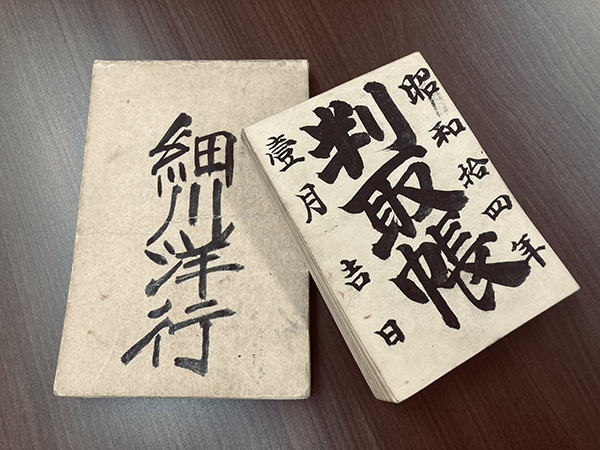 細川洋行
昭和拾四年
判取帳
壹月
吉日